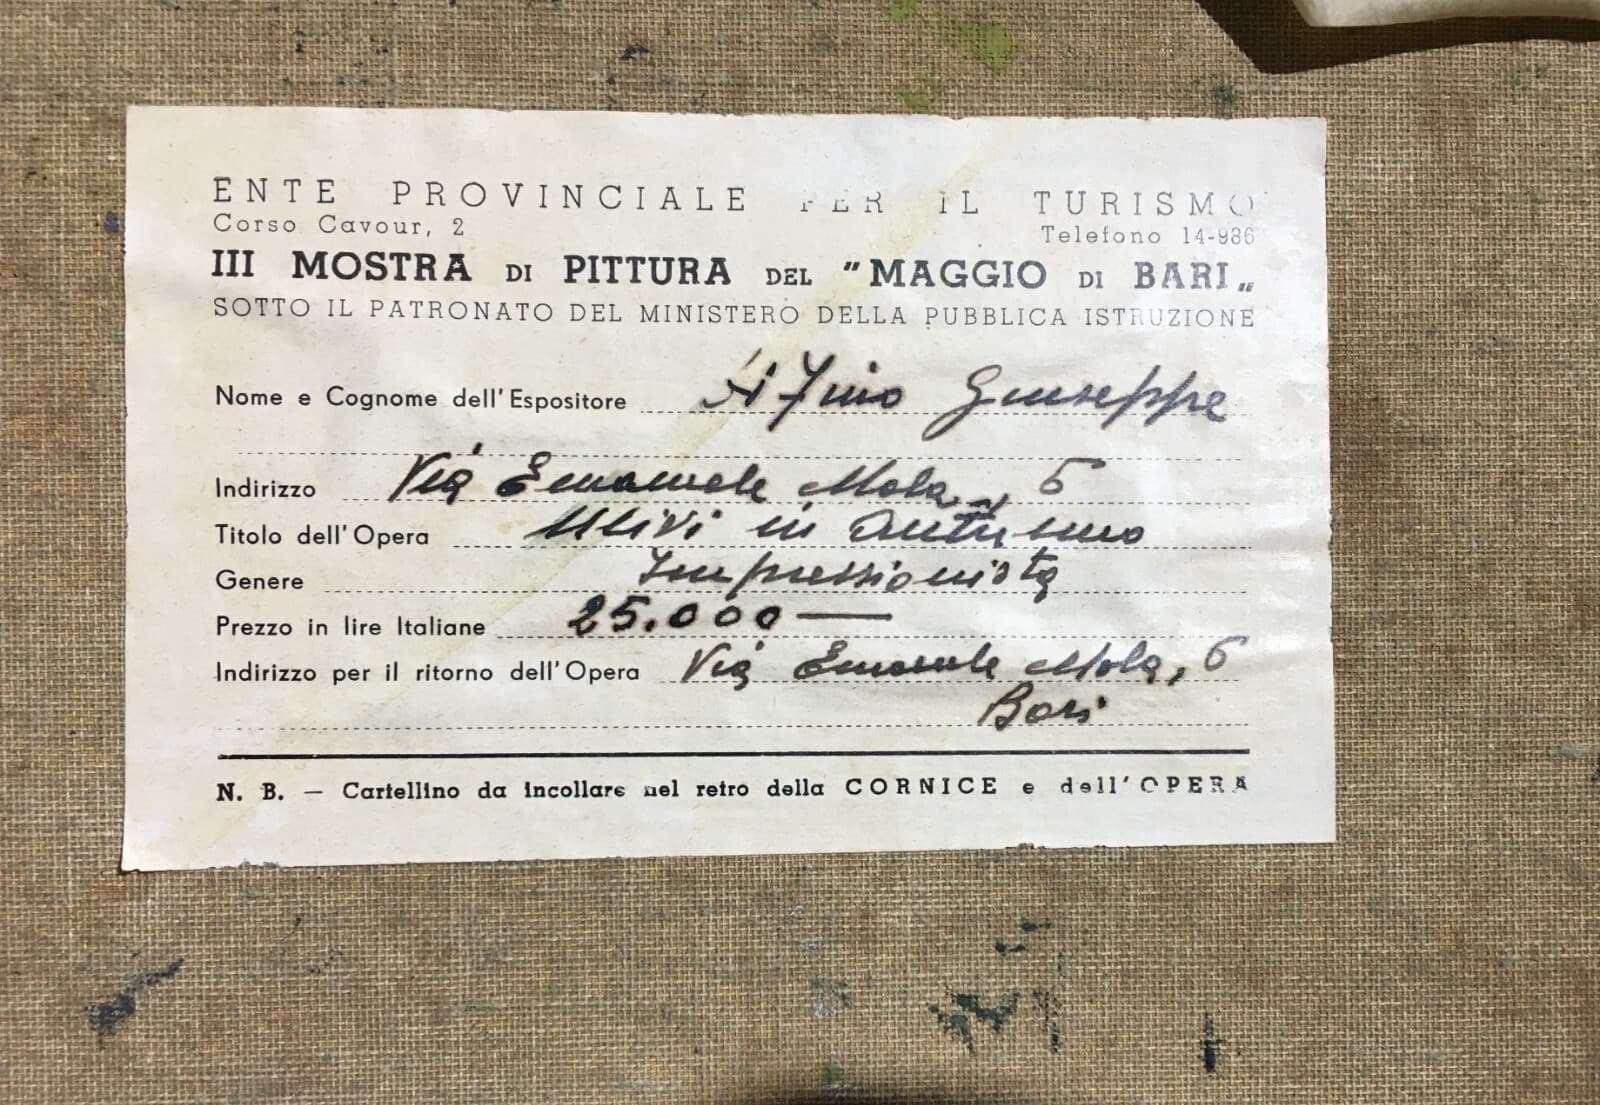 ENTE PROVINCIALE PER IL TURISMO
Corso Cavour, 2 Telefono 14-986
III MOSTRA DI PITTURA DEL "MAGGIO DI BARI„
SOTTO IL PATRONATO DEL MINISTERO DELLA PUBBLICA ISTRUZIONE
Nome e Cognome dell'Espositore Giuseppe
Indirizzo Via Emanuele Mola, 6
Titolo dell'Opera Ulivi in autunno
Genere Impressionista
Prezzo in lire Italiane 25.000 —
Indirizzo per il ritorno dell'Opera Via Emanuele Mola, 6
Bari
N. B. — Cartellino da incollare nel retro della CORNICE e dell'OPERA